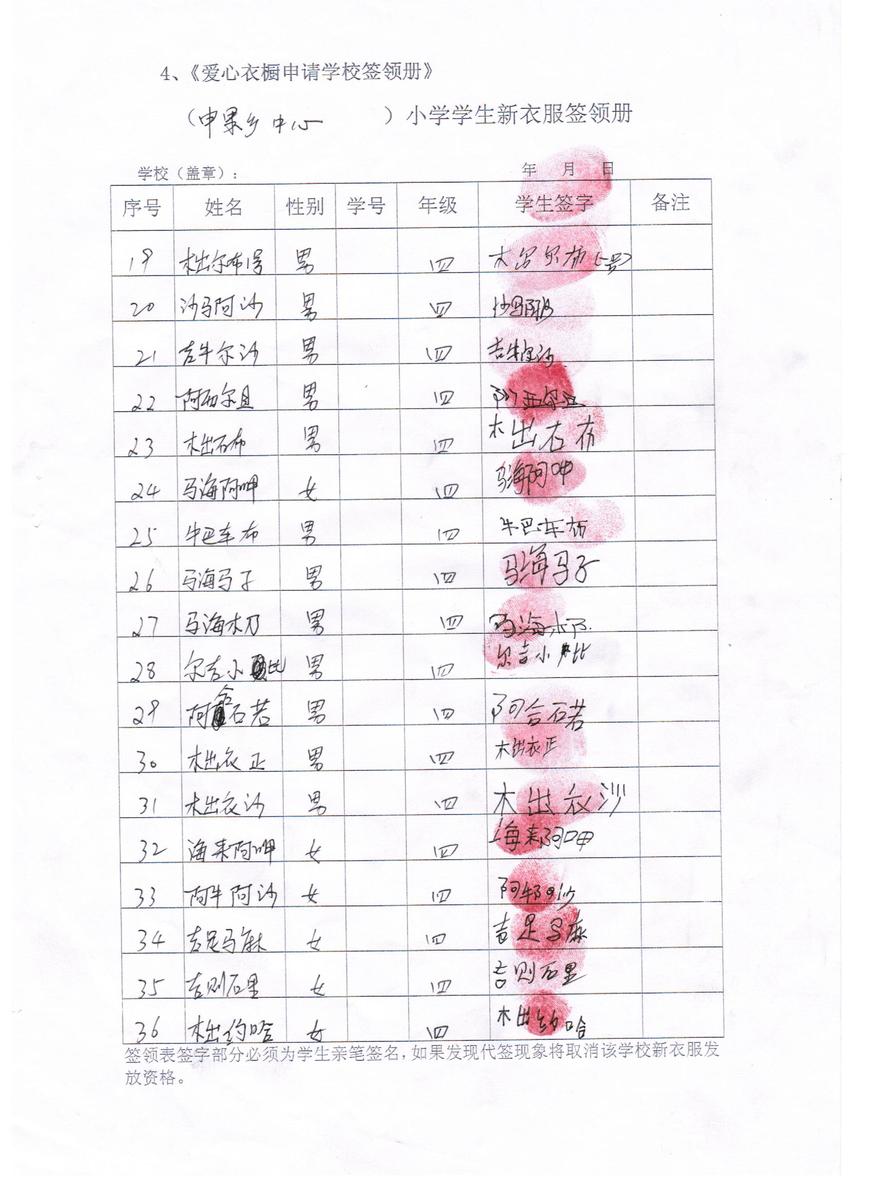 4、《爱心衣橱申请学校签领册》
（申果乡中心）小学学生新衣服签领册
学校（盖章）： 年 月 日
序号 姓名 性别 学号 年级 学生签字 备注
19 木出尔布 男 四 木出尔布
20 沙马阿沙 男 四 沙马阿沙
21 吉牛尔沙 男 四 吉牛尔沙
22 阿西尔且 男 四
23 木出石布 男 四 木出石布
24 马海阿呷 女 四 马海阿呷
25 牛巴车布 男 四 牛巴车布
26 马海马子 男 四 马海马子
27 马海木乃 男 四 马海木乃
28 尔吉小比 男 四 尔吉小比
29 阿合石若 男 四 阿合石若
30 木出衣正 男 四 木出衣正
31 木出衣沙 男 四 木出衣沙
32 海来阿呷 女 四 海来阿呷
33 阿牛阿沙 女 四 阿牛阿沙
34 吉足马麻 女 四 吉足马麻
35 吉则石里 女 四 吉则石里
36 木出约哈 女 四 木出约哈
签领表签字部分必须为学生亲笔签名，如果发现代签现象将取消该学校新衣服发
放资格。